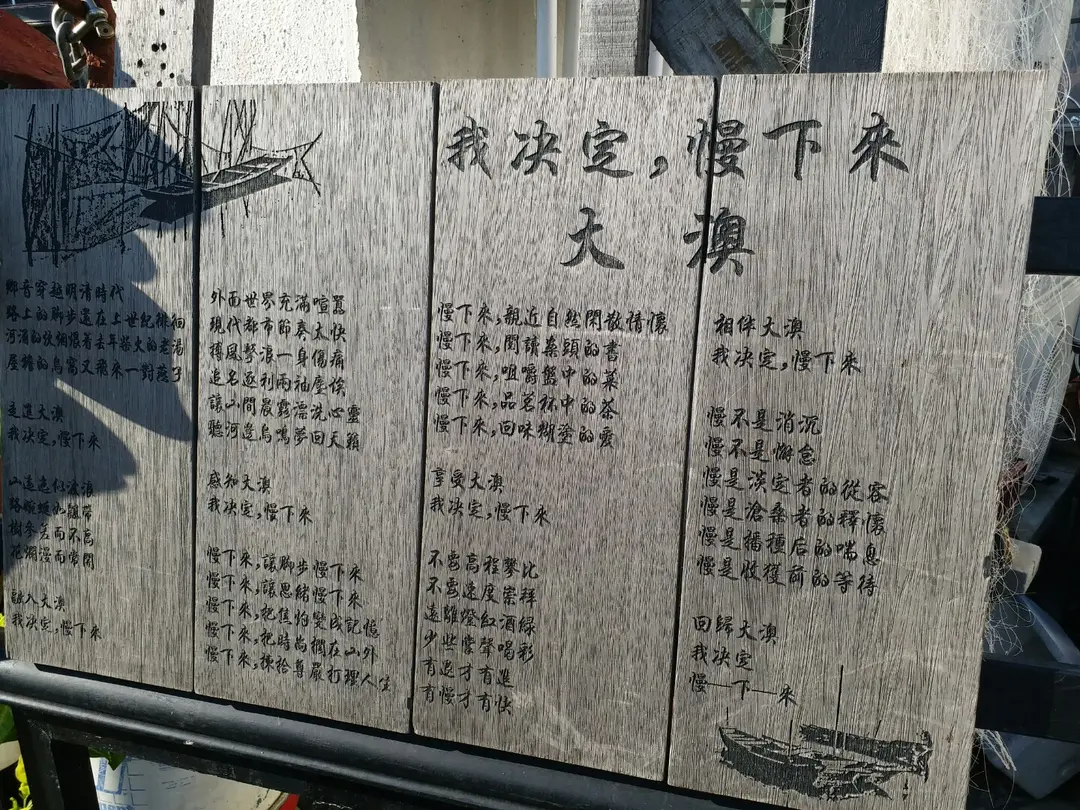 我决定,慢下來
大澳
鄉音穿越明清時代
路上的脚步還在上世紀徘徊
河涌的牧網恨着去年柴火的老湯
屋檐的鳥窩又飛來一對燕子
走進大澳
我决定,慢下來
山遠色似波浪
路蜿蜒如飄帶
樹參差而不亂
花瀾漫而常開
融入大澳
我决定,慢下來
外面世界充滿喧囂
現代都市節奏太快
搏風擊浪一身傷痛
追名逐利兩袖塵埃
讓山間晨霧漂洗心靈
聽河邊鳥鳴夢回天籟
感知大澳
我决定,慢下來
慢下來,讓脚步慢下來
慢下來,讓思緒慢下來
慢下來,把焦灼變成記憶
慢下來,把時尚擱在山外
慢下來,揀拾尊嚴打理人生
慢下來,親近自然閑散情懷
慢下來,閱讀案頭的書
慢下來,咀嚼盤中的菜
慢下來,品茗杯中的茶
慢下來,回味糊塗的愛
享受大澳
我决定,慢下來
不要高程攀比
不要速度崇拜
遠離燈紅酒緑
少些掌聲喝彩
有退才有進
有慢才有快
相伴大澳
我决定,慢下來
慢不是消沉
慢不是懈怠
慢是淡定者的從容
慢是滄桑者的釋懷
慢是播種后的喘息
慢是收獲前的等待
回歸大澳
我决定
慢—下—來